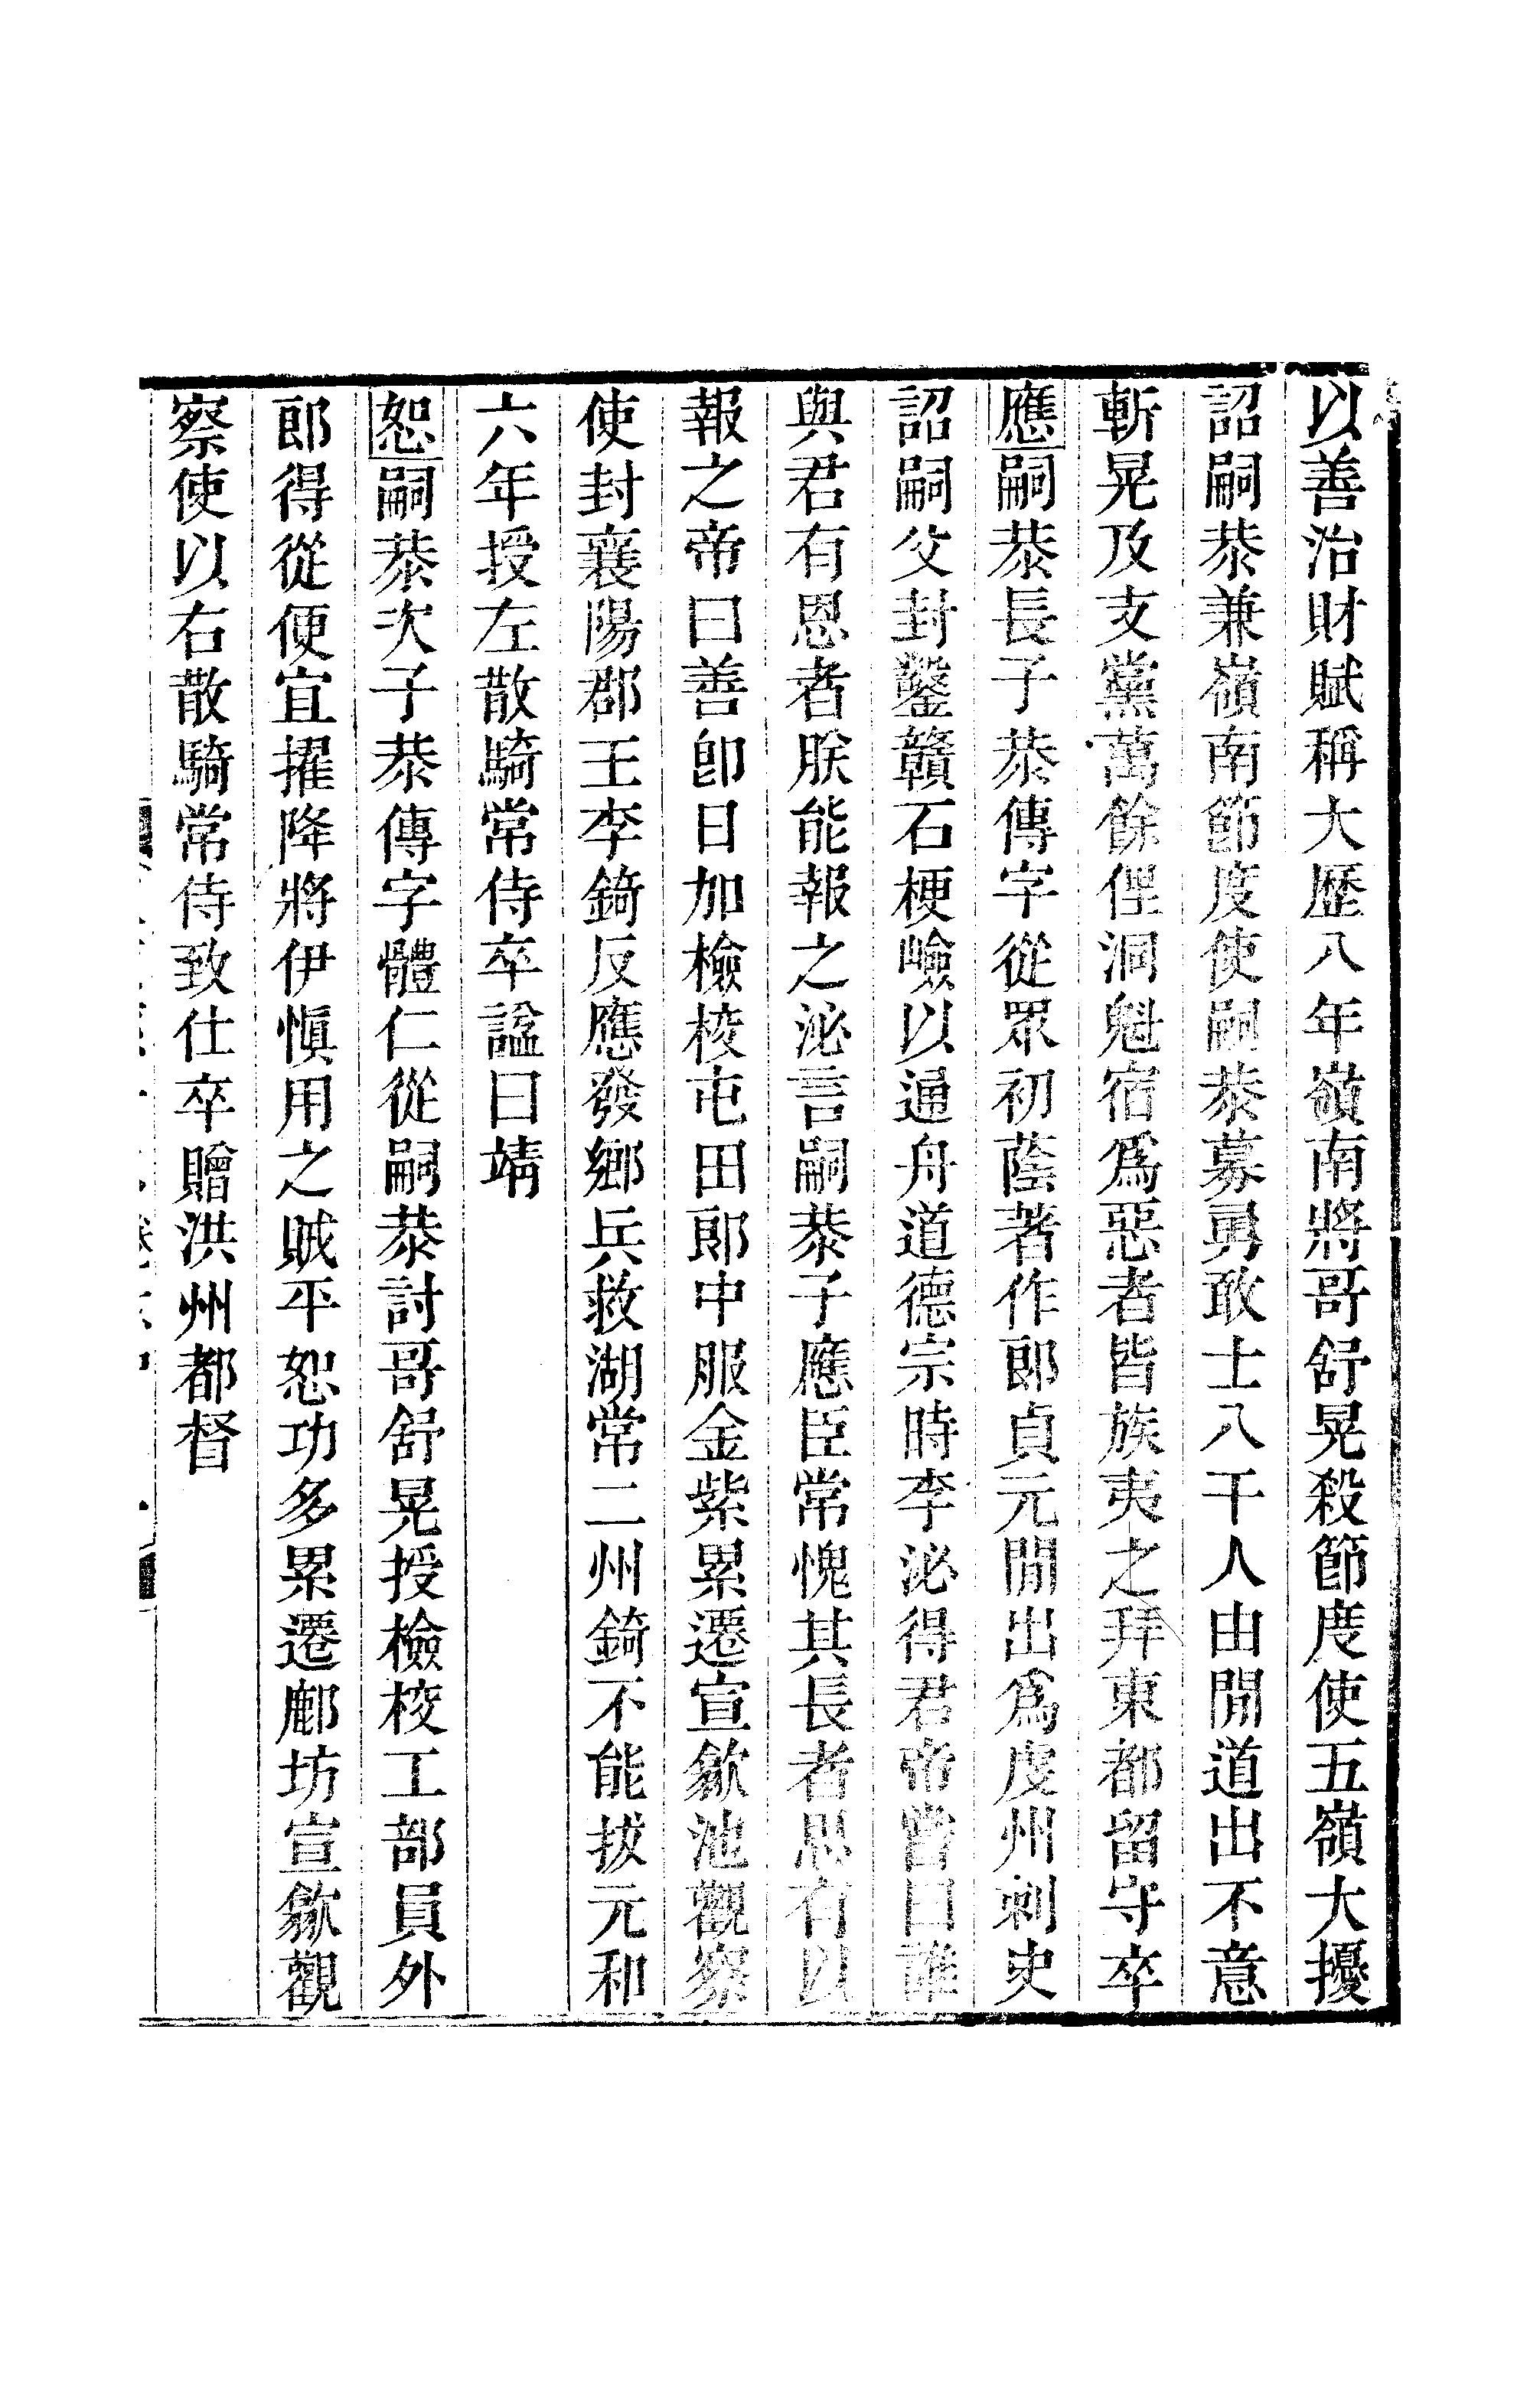 以善治財賦稱大歷八年嶺南將哥舒晃殺節度使五嶺大擾
詔嗣恭兼嶺南節度使嗣恭募勇敢士八千人由閒道出不意
斬晃及支黨萬餘俚洞魁宿爲惡者皆族夷之拜東都留守卒
應嗣恭長子恭傳字從眾初蔭著作郎貞元閒出爲虔州刺史
詔嗣父封鑿贛石梗嶮以通舟道德宗時李泌得君帝嘗曰誰
與君有恩者朕能報之泌言嗣恭子應臣常愧其長者思有以
報之帝曰善卽日加檢校屯田郎中服金紫累遷宣歙池觀察
使封襄陽郡王李錡反應發鄉兵救湖常二州錡不能拔元和
六年授左散騎常侍卒諡曰靖
恕嗣恭次子恭傳字體仁從嗣恭討哥舒晃授檢校工部員外
郎得從便宜擢降將伊愼用之賊平恕功多累遷鄜坊宣歙觀
察使以右散騎常侍致仕卒贈洪州都督